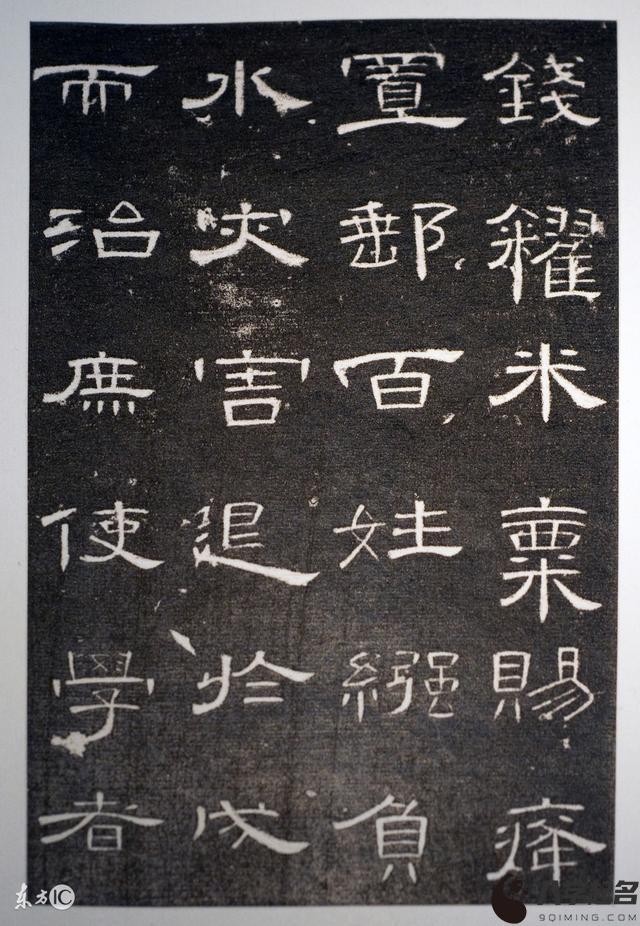 錢糴米粟賜癃
置郵百姓繈負
水灾害退於戌
而治庶使學者
东方IC
名
9QIMING.COM